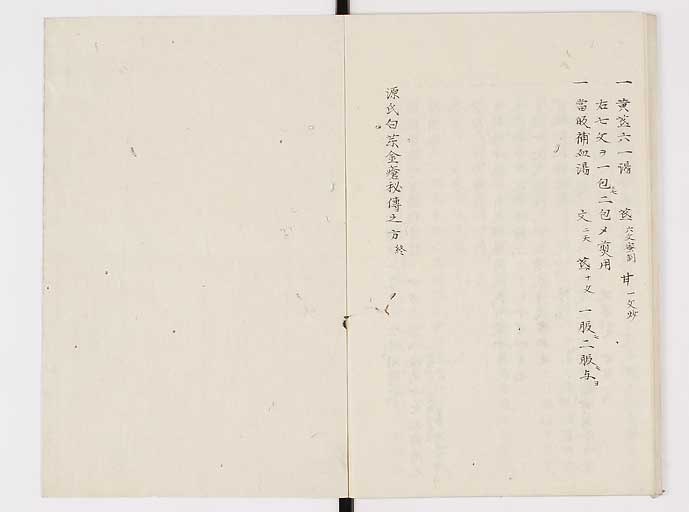 一 黄芪六一湯 芪 六文蜜刻 甘 一文炒
右七文ヲ一包ニ二包〆煎用
一 當皈補血湯 文 二大 芪 十文 一服ニ二服与ヨ
源氏白朮金瘡秘傳之方 終